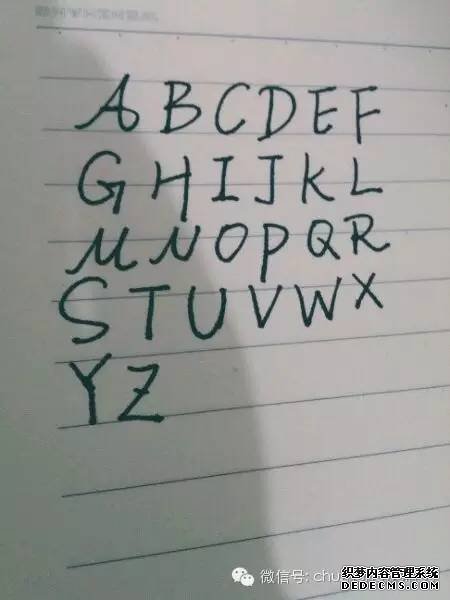 A B C D E F
G H I J K L
M N O P Q R
S T U V W X
Y Z
微信号: chu
织梦内容管理系统
DEDECMS.COM